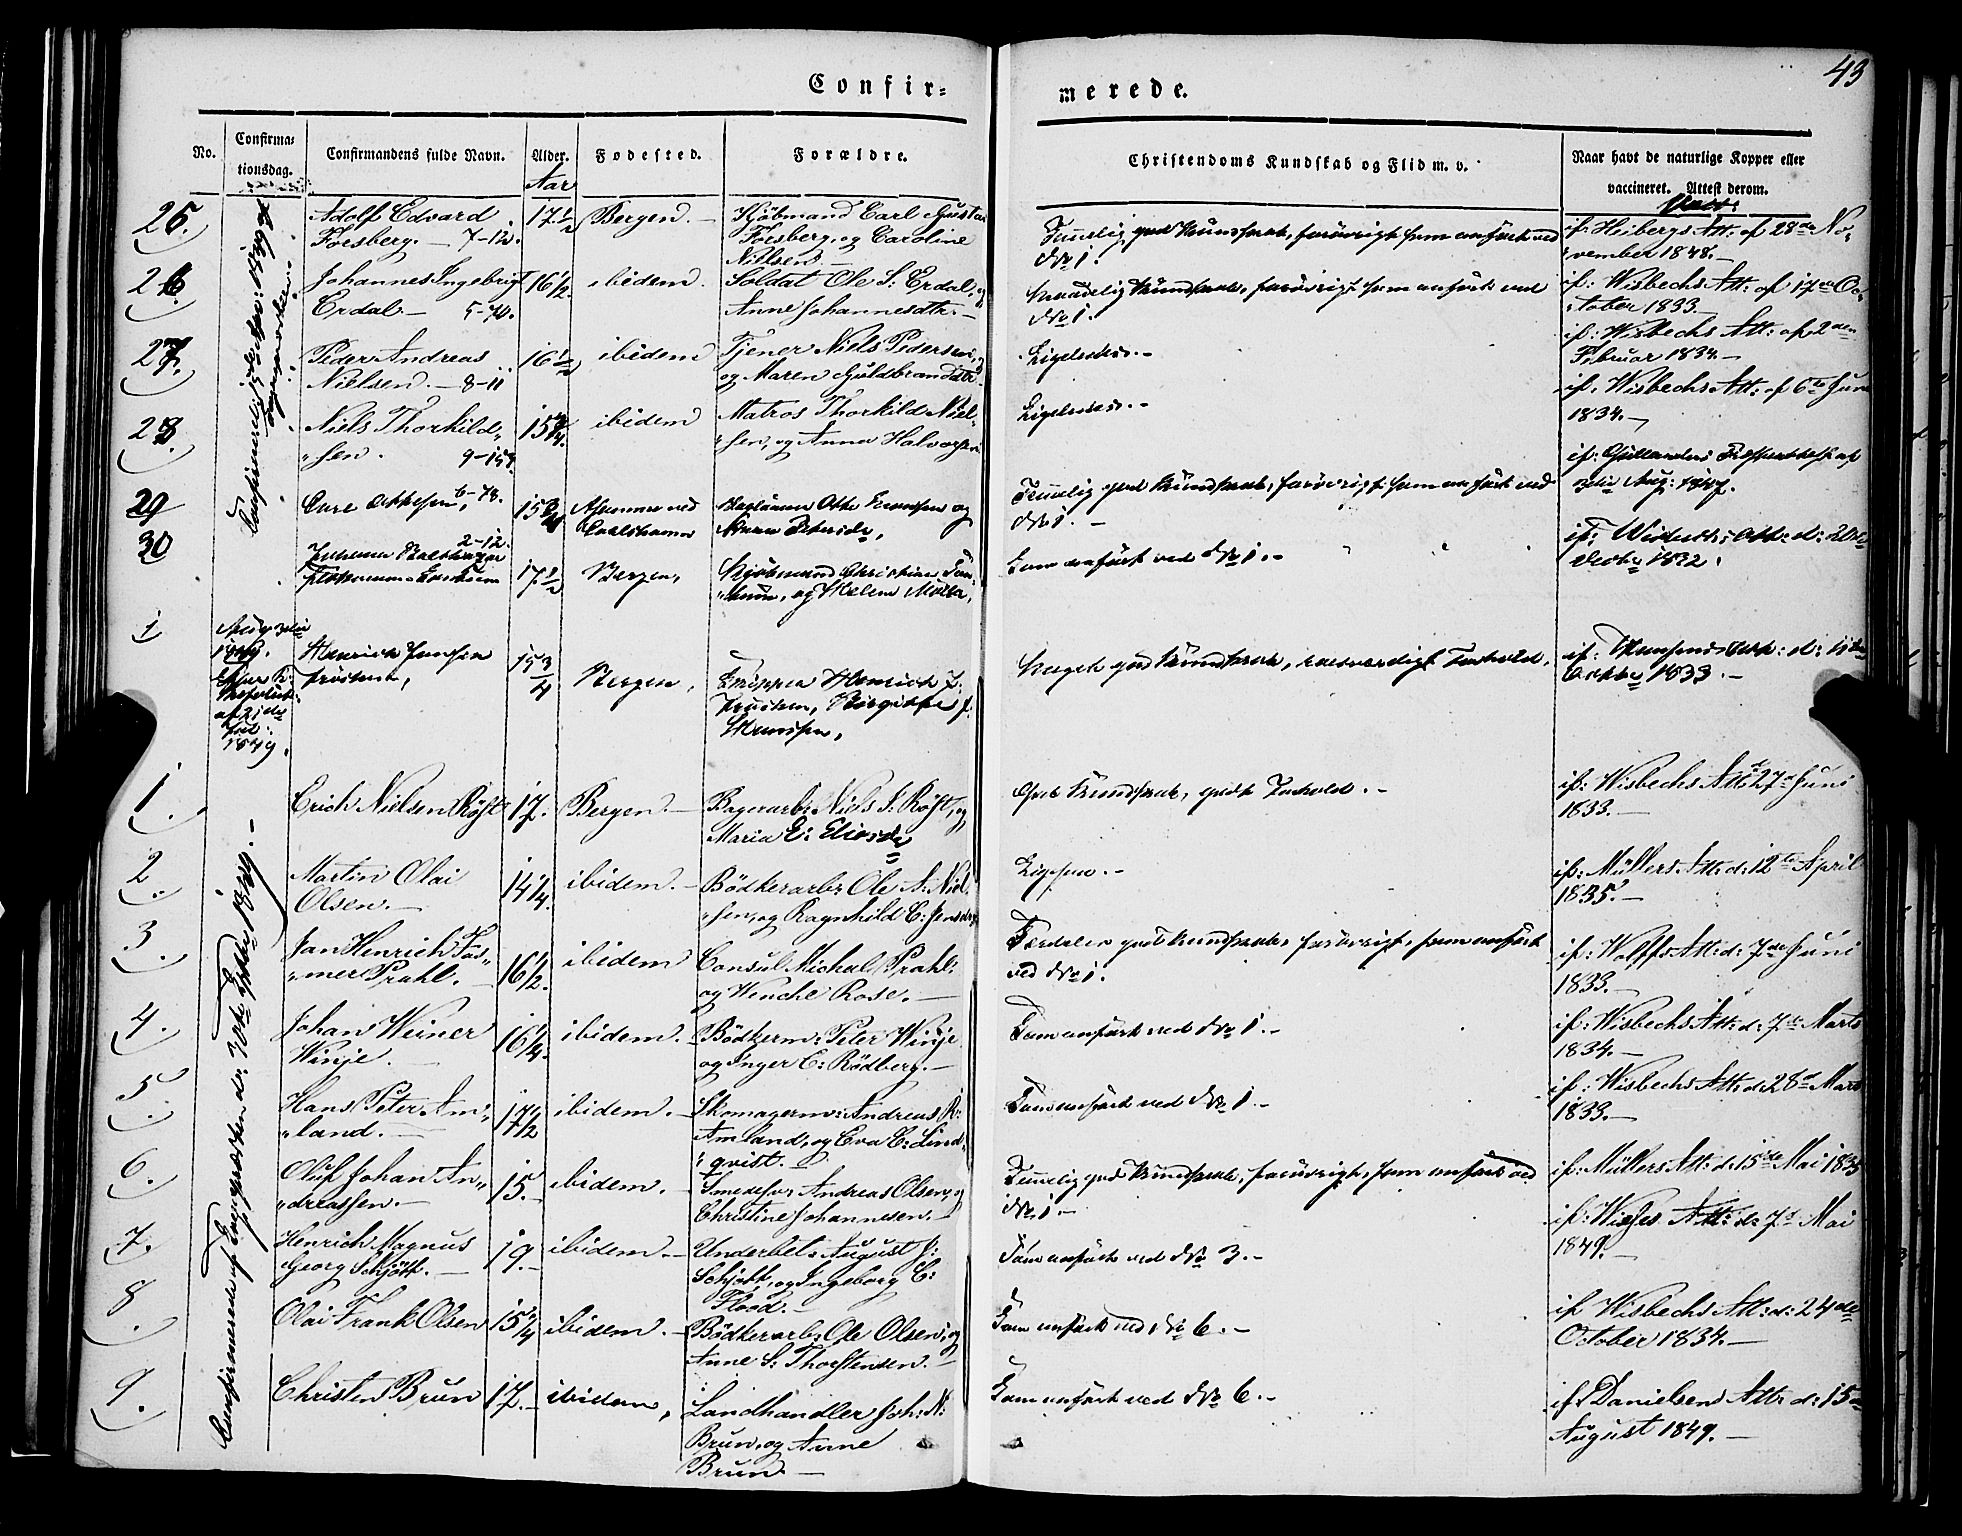 43
Confir=
merede.
No.
Confirma=
tionsdag.
Confirmandens fulde Navn.
Alder.
Aar
Fødested.
Forældre.
Christendoms Kundskab og Flid m. v.
Naar havt de naturlige Kopper eller
vaccineret. Attest derom.
Vacc:
25.
Adolf Edvard
Forsberg. — 7-12.
17 1/2
Bergen. —
Kjöbmand Carl Gustav
Forsberg, og Caroline
Nielsen. —
Temelig god Kundskab, forövrigt som anfört ved
No 1.
if: Heibergs Att: af 28de No-
vember 1848. —
26.
Johannes Ingebrigt
Erdal. — 5-70.
16 1/2
ibidem.
Soldat Ole S: Erdal, og
Anne Johannesdtr. —
Maadelig Kundskab, forövrigt som anfört ved
No 1.
if: Wisbechs Att: af 17de Oc-
tober 1833. —
27.
Peder Andreas
Nielsen. — 8-11
16 1/2
ibidem
Tjener Niels Pedersen,
og Maren Guldbrandsdtr.
Ligeledes. —
if: Wisbechs Att: af 2den
Februar 1834. —
28.
Niels Thorkild-
sen.
15 3/4.
ibidem
Matros Thorkild Niel-
sen, og Anna Halvorsen
Ligeledes. —
if: Wisbechs Att: af 6te Juni
1834. —
29
6-78.
15 3/4
Temelig god Kundskab, forövrigt som anfört ved
No 1. —
Aug: 1847.
30
2-12.
17 1/2
Bergen,
Kjöbmand Christian
og Helene
Som anfört ved No 1. —
1832.
1
1849.
1849.
Henrich Jansen
15 3/4
Bergen,
Henrich J:
Meget god Kundskab, roesværdigt Forhold.
if:
1833. —
Confirmerede af Sognepræsten d: 30te Septbr 1849. —
1.
Erich Nielsen Röst
17.
Bergen. —
Bagerarb: Niels S. Röst, og
Maria E: Eliasdr
God Kundskab, godt Forhold. —
if: Wisbechs Att: 27de Juni
1833. —
2.
Martin Olai
Olsen. —
14 1/4.
ibidem. —
Bödkerarb: Ole A: Niel-
sen, og Ragnhild C: Jensdr
Ligesom. —
if: Müllers Att: d: 12te April
1835. —
3.
Jan Henrich Fas-
mer Prahl. —
16 1/2.
ibidem
Consul Michael Prahl:
og Wenche Rose. —
Særdeles god Kundskab, forövrigt, som anfört
ved No 1.
if: Wolffs Att: d: 7de Juni
1833. —
4.
Johan Werner
Winje. —
16 1/4.
ibidem. —
Bödkerm: Peter Winje
og Inger C: Rödberg. —
Som anfört ved No 1. —
if: Wisbechs Att: d: 7de Marts
1834. —
5.
Hans Peter Am-
land. —
17 1/2
ibidem. —
Skomagerm: Andreas R:
Amland, og Eva C: Lind-
qvist. —
Som anfört ved No 1. —
if: Wisbechs Att: d: 28de Marts
1833. —
6.
Oluf Johan An-
dreassen. —
15. —
ibidem. —
Smedesv: Andreas Olsen, og
Christine Johannesen. —
Temelig god Kundskab, forövrigt, som anfört ved
No 1. —
if: Müllers Att: d: 15de Mai 1835
7.
Henrich Magnus
Georg Schjött. —
19. —
ibidem. —
Underbet: August J:
Schjött, og Ingeborg C:
Flood. —
Som anfört ved No 3. —
if: Wieses Att: d: 7de Mai
1849. —
8.
Olai Frank Olsen
15 3/4
ibidem. —
Bödkerarb: Ole Olsen, og
Anne S: Thorstensen. —
Som anfört ved No 6. —
if Wisbechs Att: d: 24de
October 1834. —
9.
Christen Brun
17. —
ibidem,
Landhandler Joh: N:
Brun, og Anne
Brun. —
Som anfört ved No 6. —
if Danielsens Att: d: 15de
August 1849. —